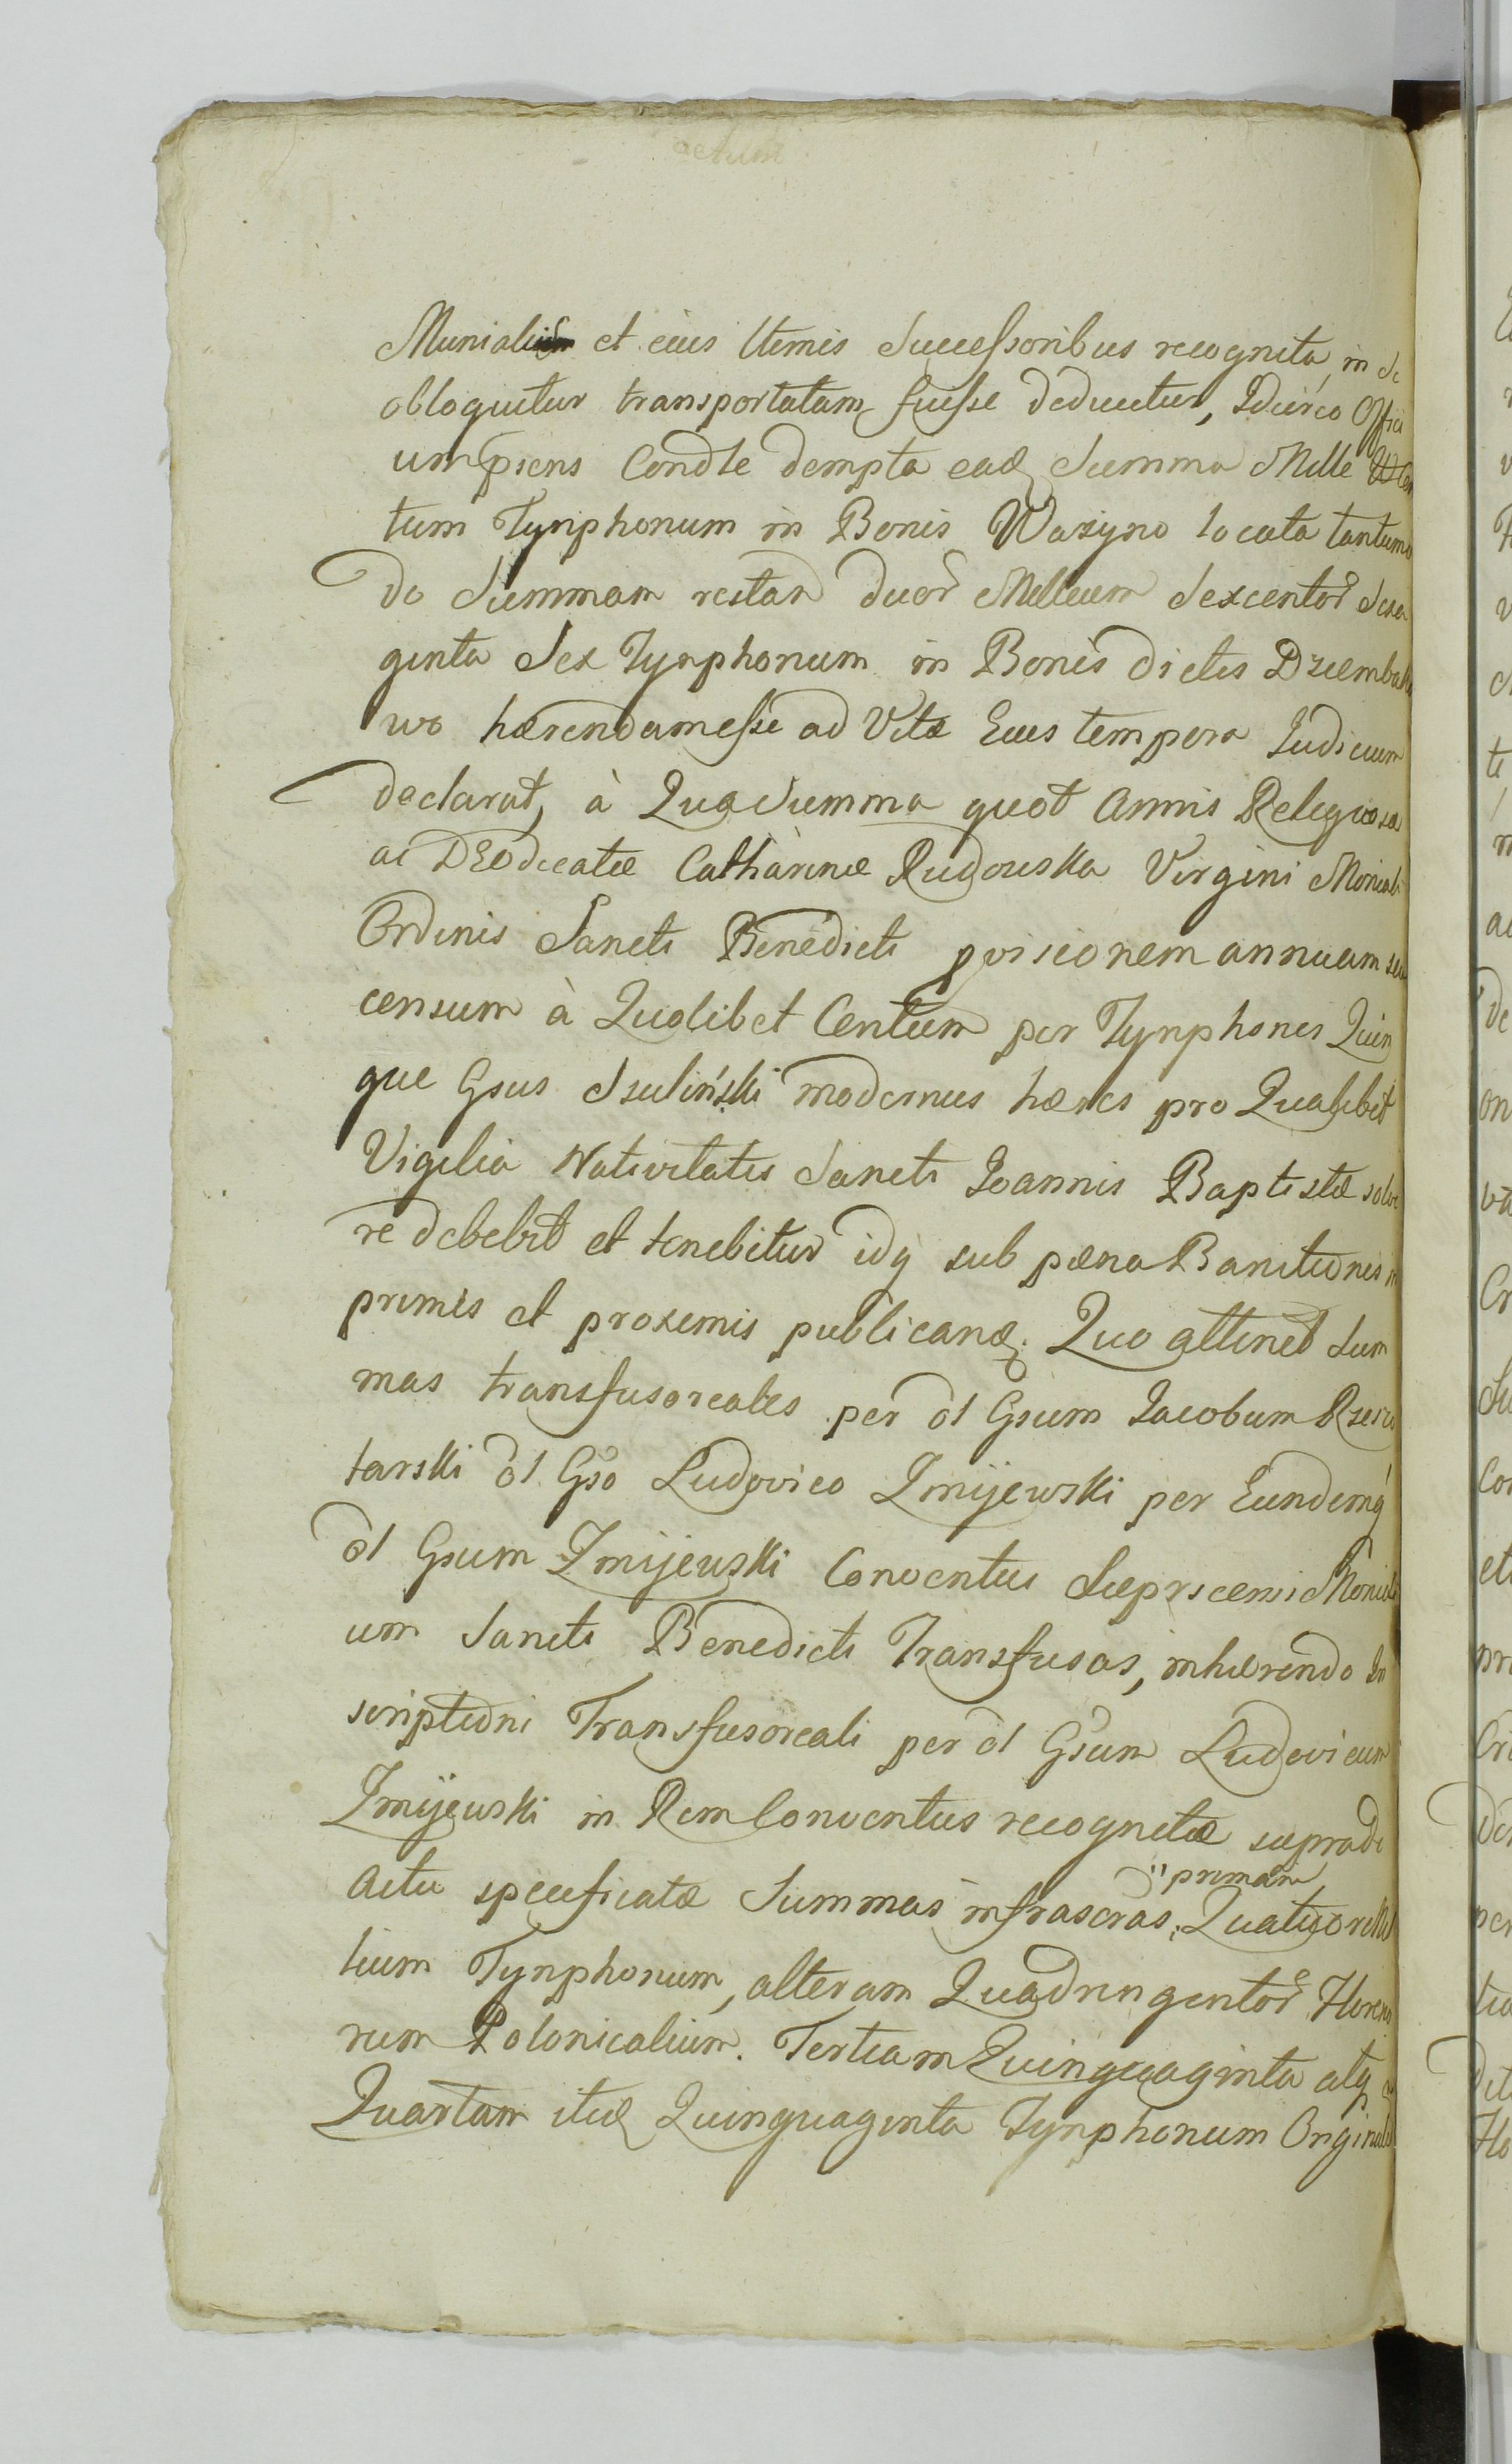 actum
Munialium et eius ltemis Successoribus recognita, in Se
obloquitur transportatam fuisse deducitur, Idcirco Offici
um psens Condle dempta eadę Summa Mille Cen
tum Tynphonum in Bonis Wasyno locata tantumo
do Summam restan duor Millium Sexcentor Sexa
ginta Sex Tynphonum in Bonis dictis Dziembako
wo hærendamesse ad Vitæ Eius tempora Iudicium
declarat, à Qua Summa quot Annis Religiosæ
ac DEOdicatæ Catharinæ Rudowska Virgini Moniali
Ordinis Sancti Benedicti pvisionem annuam seu
censum à Quolibet Centum per Tynphones Quin
que Gsus Szuliński modernus hæres pro Qualibet
Vigilia Nativitatis Sancti Ioannis Baptistæ solve
re debebit et tenebitur idq sub pæna Banitionis in
primis et proximis publicandæ. Quo attinet Sum
mas transfusoreales per ol Gsum Iacobum Rzeszo
tarski ol Gso Ludovico Zmijewski per Eundemq
ol Gsum Zmijewski Conventui Sierpscensi Moniali
um Sancti Benedicti Transfusas, inhærendo In
scriptioni Transfusoreali per ol Gsum Ludovicum
Zmijewski in Rem Conventus recognitæ supradi
Actu specificatæ Summas infrascras, "primam Quatuor Mil
lium Tynphonum, alteram Quadringentor Floreno
rum Polonicalium. Tertiam Quinquaginta atq
Quartam itidę Quinquaginta Tynphonum Originali